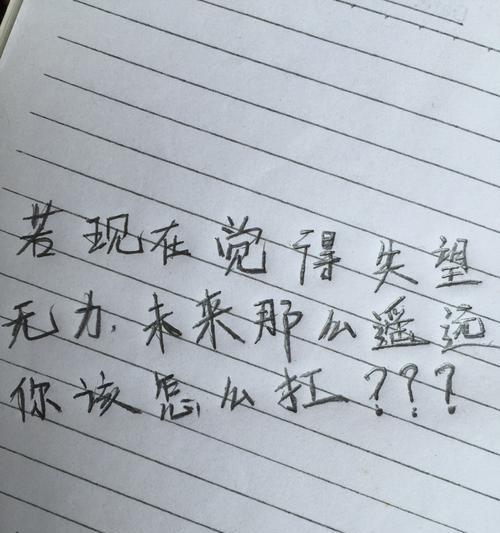 若现在觉得失望
无力,未来那么遥远
你该怎么扛???